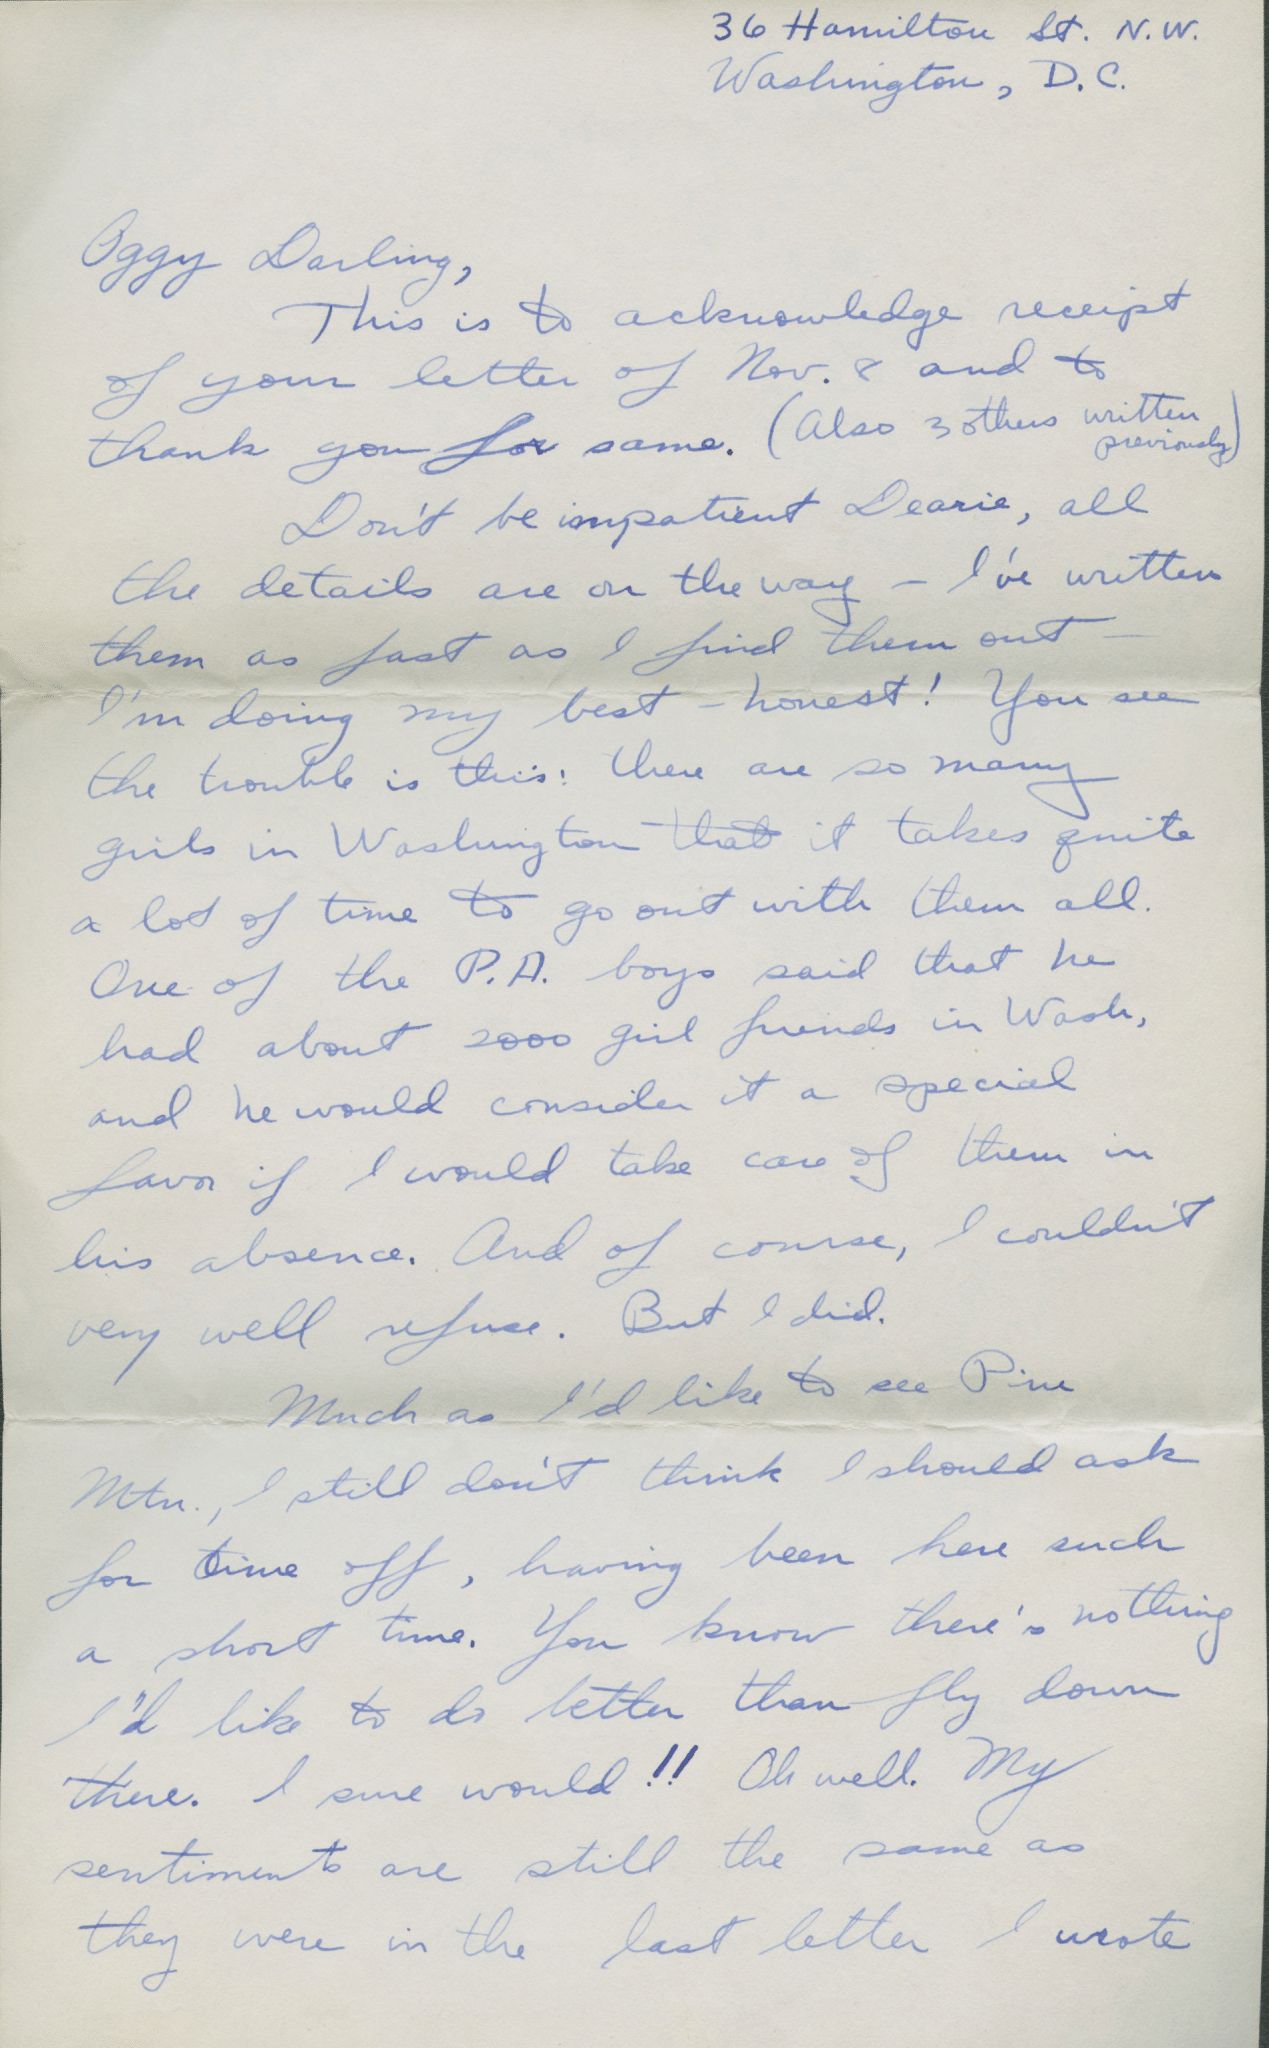 36 Hamilton St. N.W.
Washington, D.C.
Oggy Darling,
This is to acknowledge receipt
of your letter of Nov. 8 and to
thank you for same. (Also 3 others written
previously)
Don't be impatient Dearie, all
the details are on the way – I've written
them as fast as I find them out –
I'm doing my best – honest! You see
the trouble is this: there are so many
girls in Washington that it takes quite
a lot of time to go out with them all.
One of the P.A. boys said that he
had about 2000 girl friends in Wash,
and he would consider it a special
favor if I would take care of them in
his absence. And of course, I couldn't
very well refuse. But I did.
Much as I'd like to see Pine
Mtn., I still don't think I should ask
for time off, having been here such
a short time. You know there's nothing
I'd like to do better than fly down
there. I sure would!! Oh well. My
sentiments are still the same as
they were in the last letter I wrote